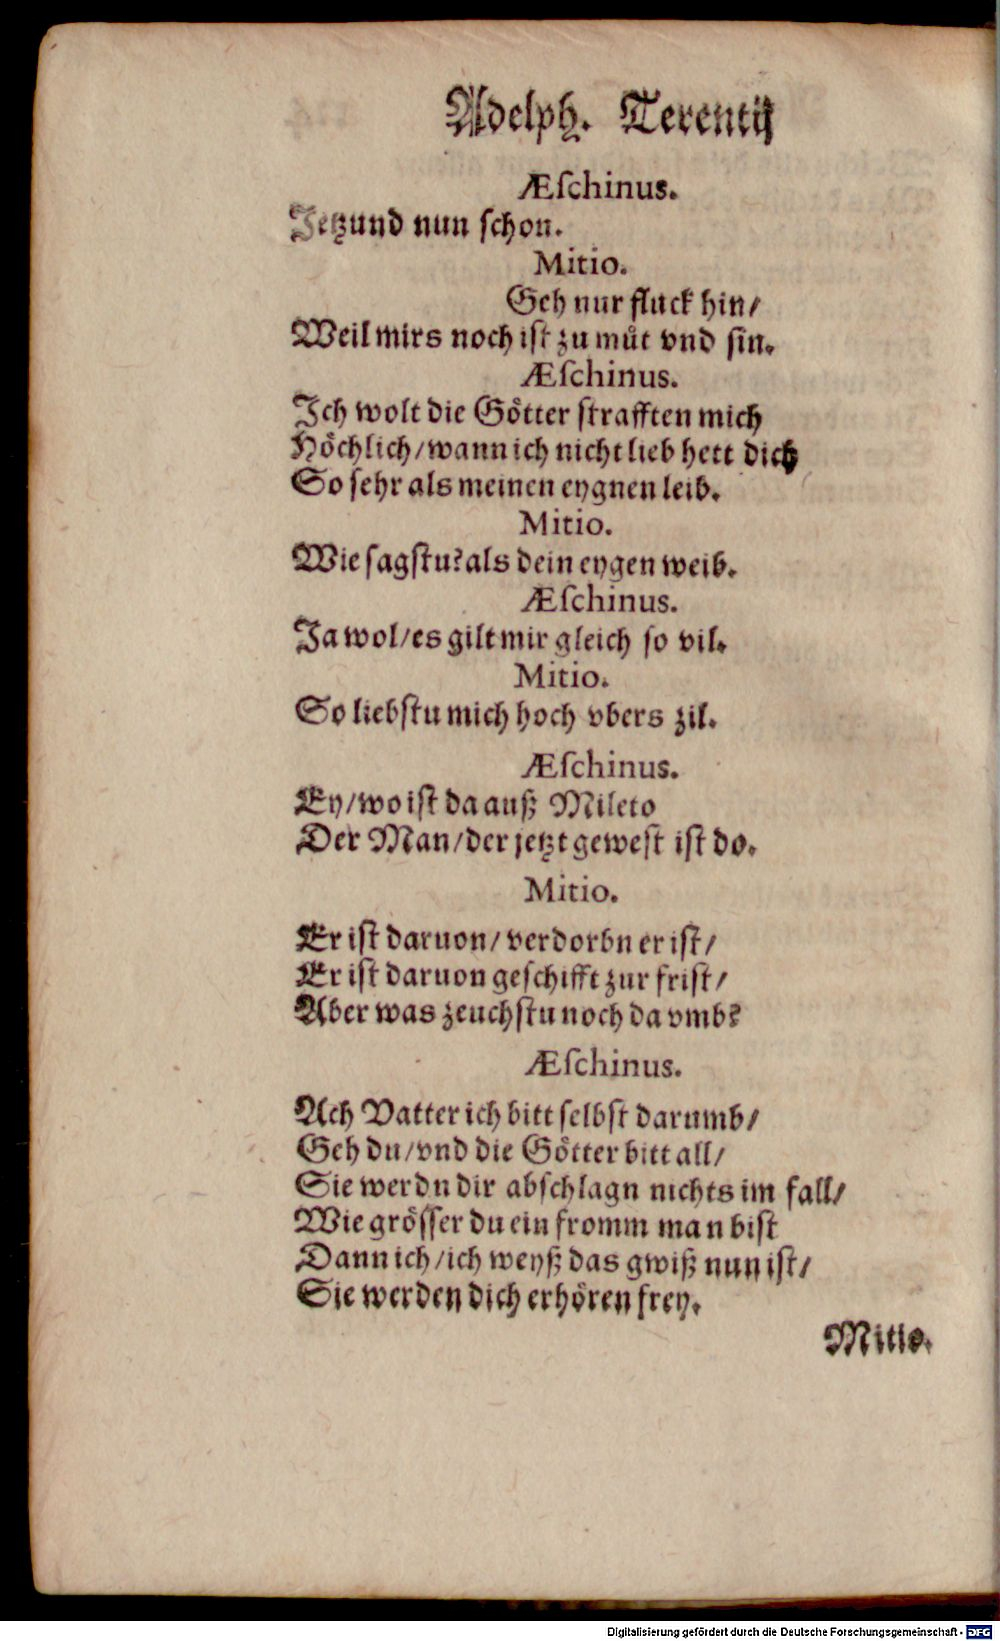 Adelph. Terentij
Æſchinus.
Jetzund nun ſchon.
Mitio.
Geh nur fluck hin/
Weil mirs noch iſt zu muͤt vnd ſin.
Æſchinus.
Jch wolt die Goͤtter ſtrafften mich
Hoͤchlich/wann ich nicht lieb hett dich
So ſehr als meinen eygnen leib.
Mitio.
Wie ſagſtu? als dein eygen weib.
Æſchinus.
Ja wol/es gilt mir gleich ſo vil.
Mitio.
So liebſtu mich hoch vbers zil.
Æſchinus.
Ey/wo iſt da auß Mileto
Der Man/der jetzt geweſt iſt do.
Mitio.
Er iſt daruon/ verdorbn er iſt/
Er iſt daruon geſchifft zur friſt/
Aber was zeuchſtu noch da vmb?
Æſchinus.
Ach Vatter ich bitt ſelbſt darumb/
Geh du/vnd die Goͤtter bitt all/
Sie werdn dir abſchlagn nichts im fall/
Wie groͤſſer du ein fromm man biſt
Dann ich/ich weyß das gwiß nun iſt/
Sie werden dich erhoͤren frey.
Mitio.
Digitalisierung gefördert durch die Deutsche Forschungsgemeinschaft - DFG